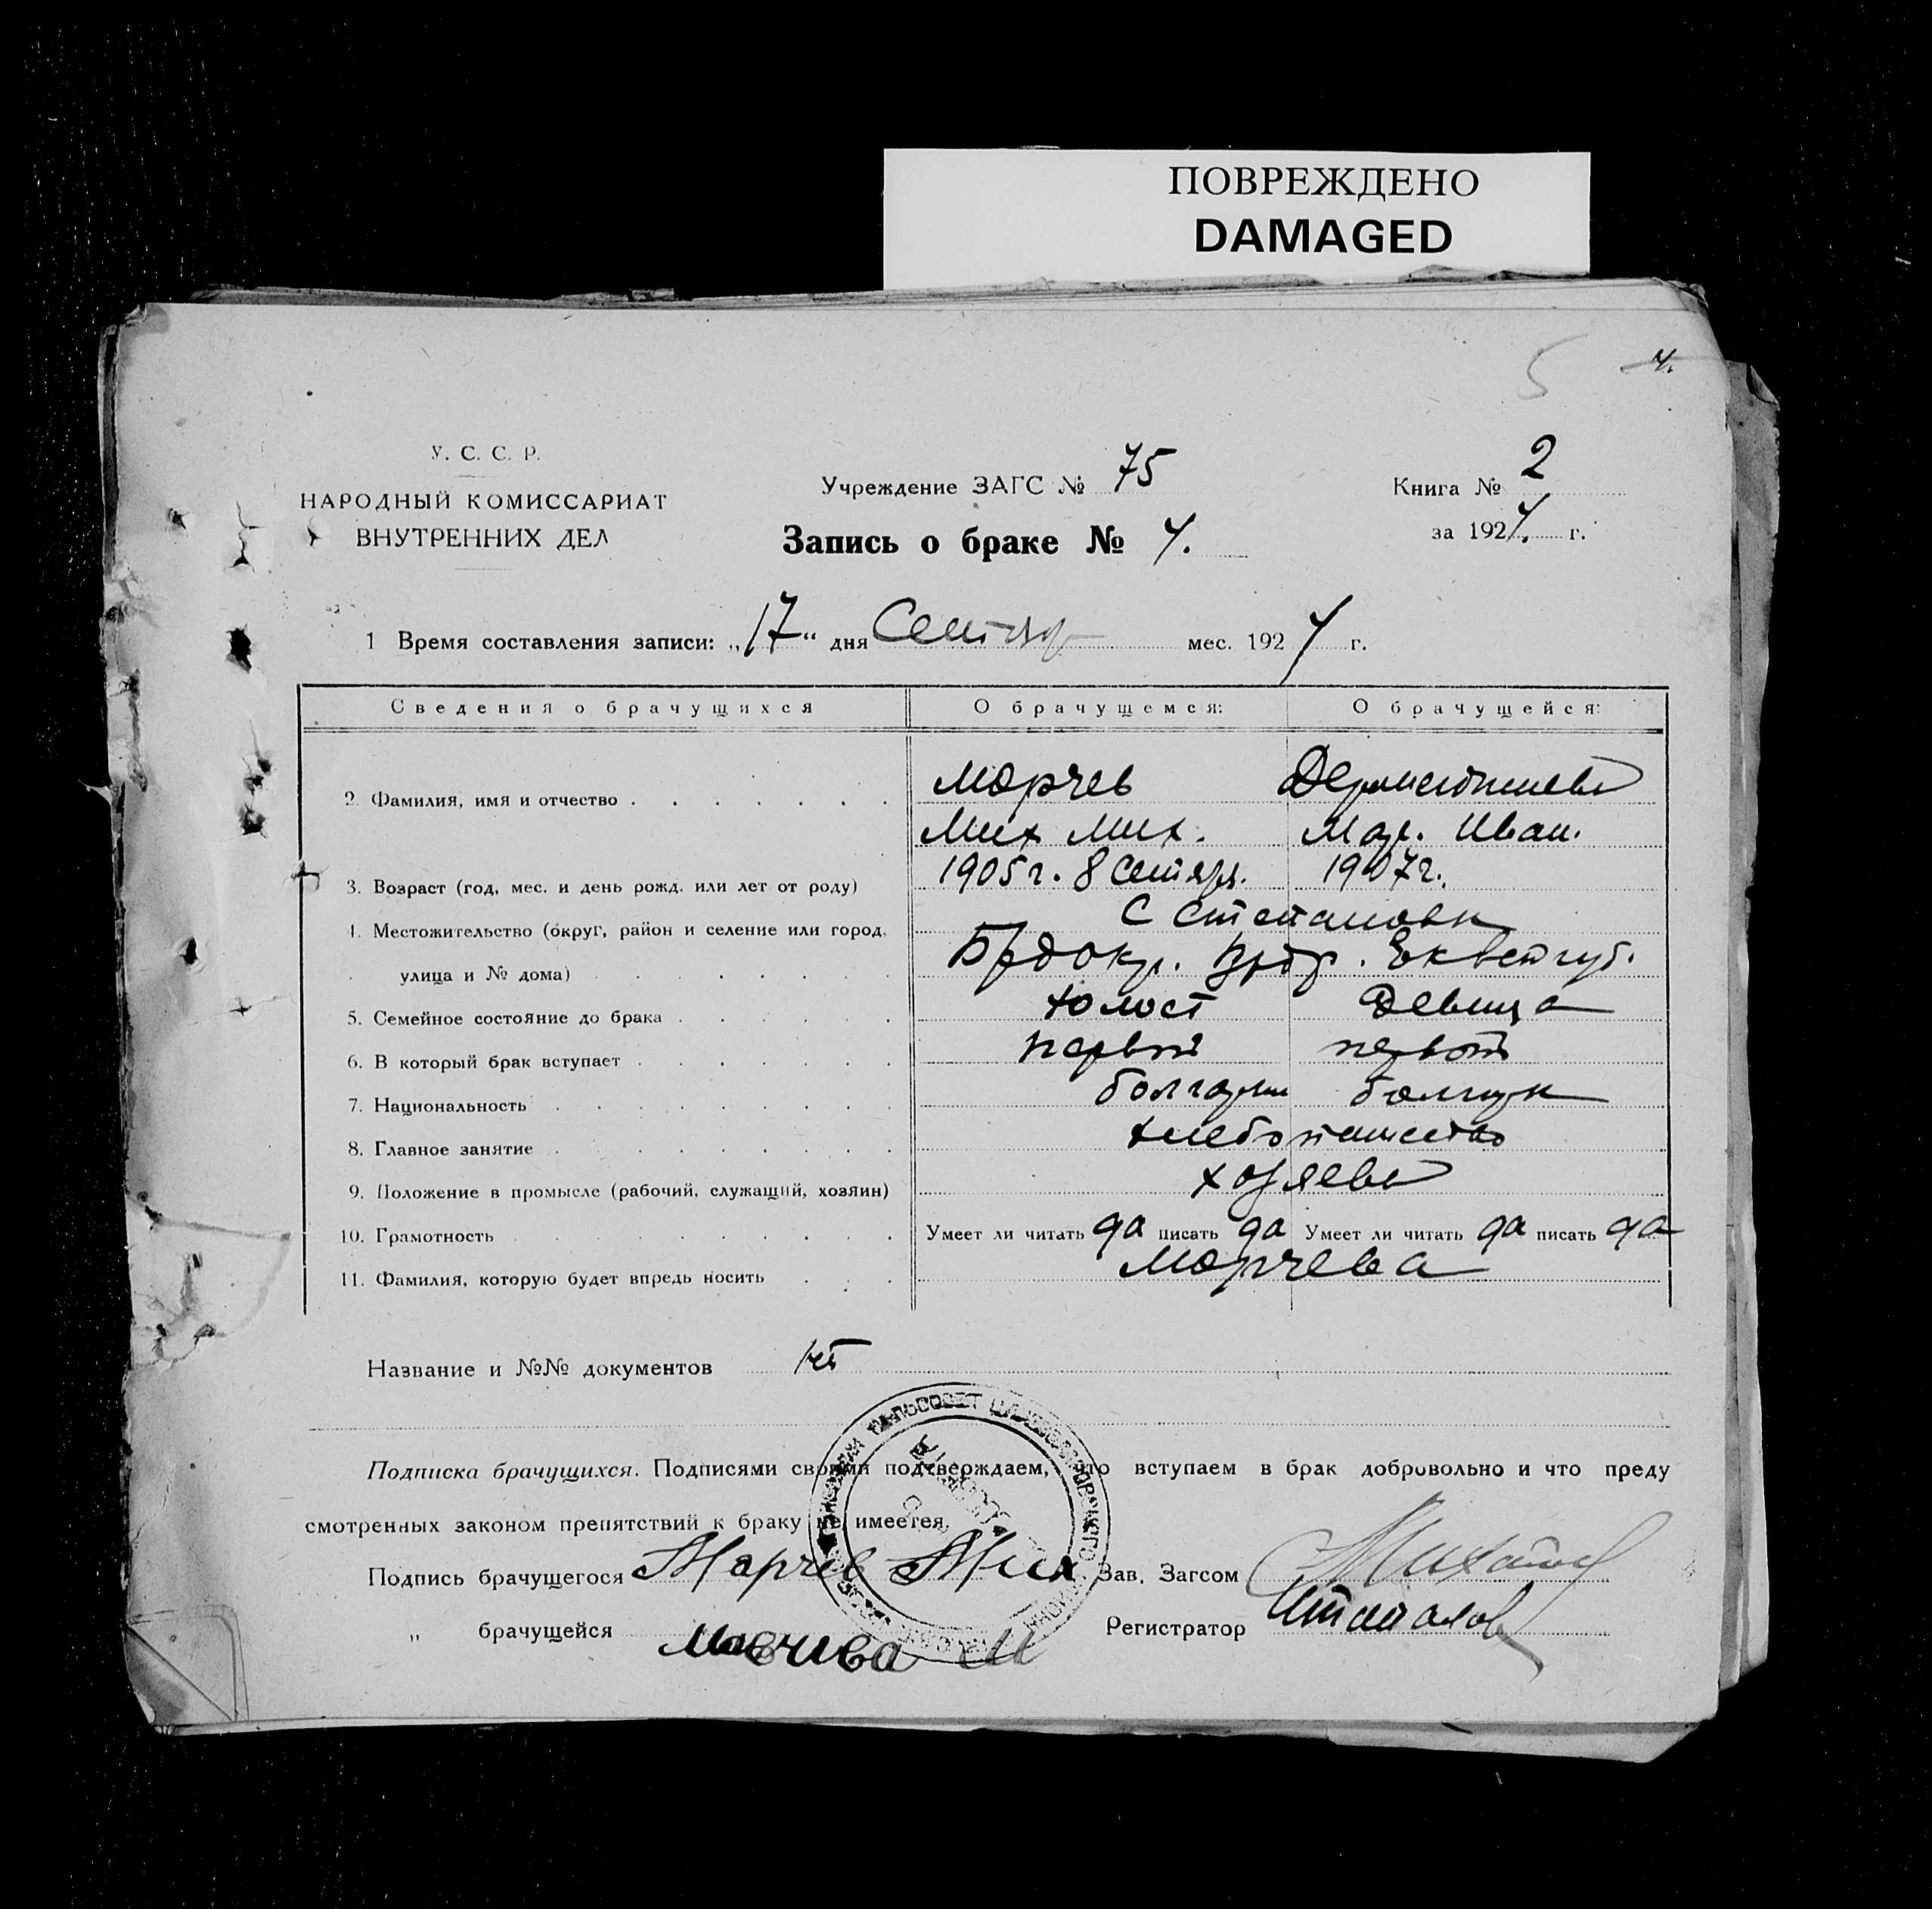 ПОВРЕЖДЕНО
DAMAGED
5 4.
У. С. С. Р.
НАРОДНЫЙ КОМИССАРИАТ
ВНУТРЕННИХ ДЕЛ
Учреждение ЗАГС № 75
Запись о браке № 4.
Книга № 2
за 1924. г.
1 Время составления записи: „17“ дня Сентяр мес. 1924 г.
Сведения о брачущихся О брачущемся: О брачущейся:
2. Фамилия, имя и отчество Марчев
Мих Мих. Мар. Иван.
3. Возраст (год, мес. и день рожд. или лет от роду) 1905 г. 8 Сентяр. 1907 г.
4. Местожительство (округ, район и селение или город, С Степановка
улица и № дома) Брдокр. Екветгуб.
5. Семейное состояние до брака холост Девица
6. В который брак вступает первый первый
7. Национальность болгарин болгарк
8. Главное занятие хлебопашество
9. Положение в промысле (рабочий, служащий, хозяин) хозяева
10. Грамотность Умеет ли читать да писать да Умеет ли читать да писать да
11. Фамилия, которую будет впредь носить Марчева
Название и №№ документов нет
Подписка брачущихся. Подписями своими подтверждаем, что вступаем в брак добровольно и что преду
смотренных законом препятствий к браку не имеется.
Подпись брачущегося Марчев Мих Зав. Загсом
„ брачущейся Марчива М Регистратор